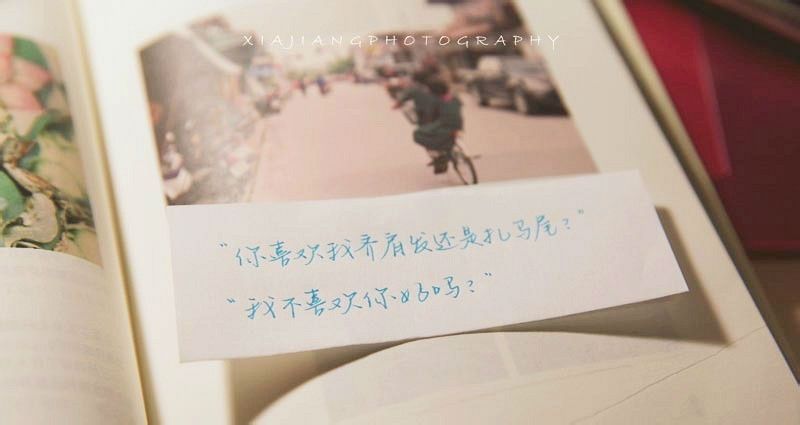 XIAJIANGPHOTOGRAPHY
“你喜欢我齐肩发还是扎马尾？”
“我不喜欢你好吗？”